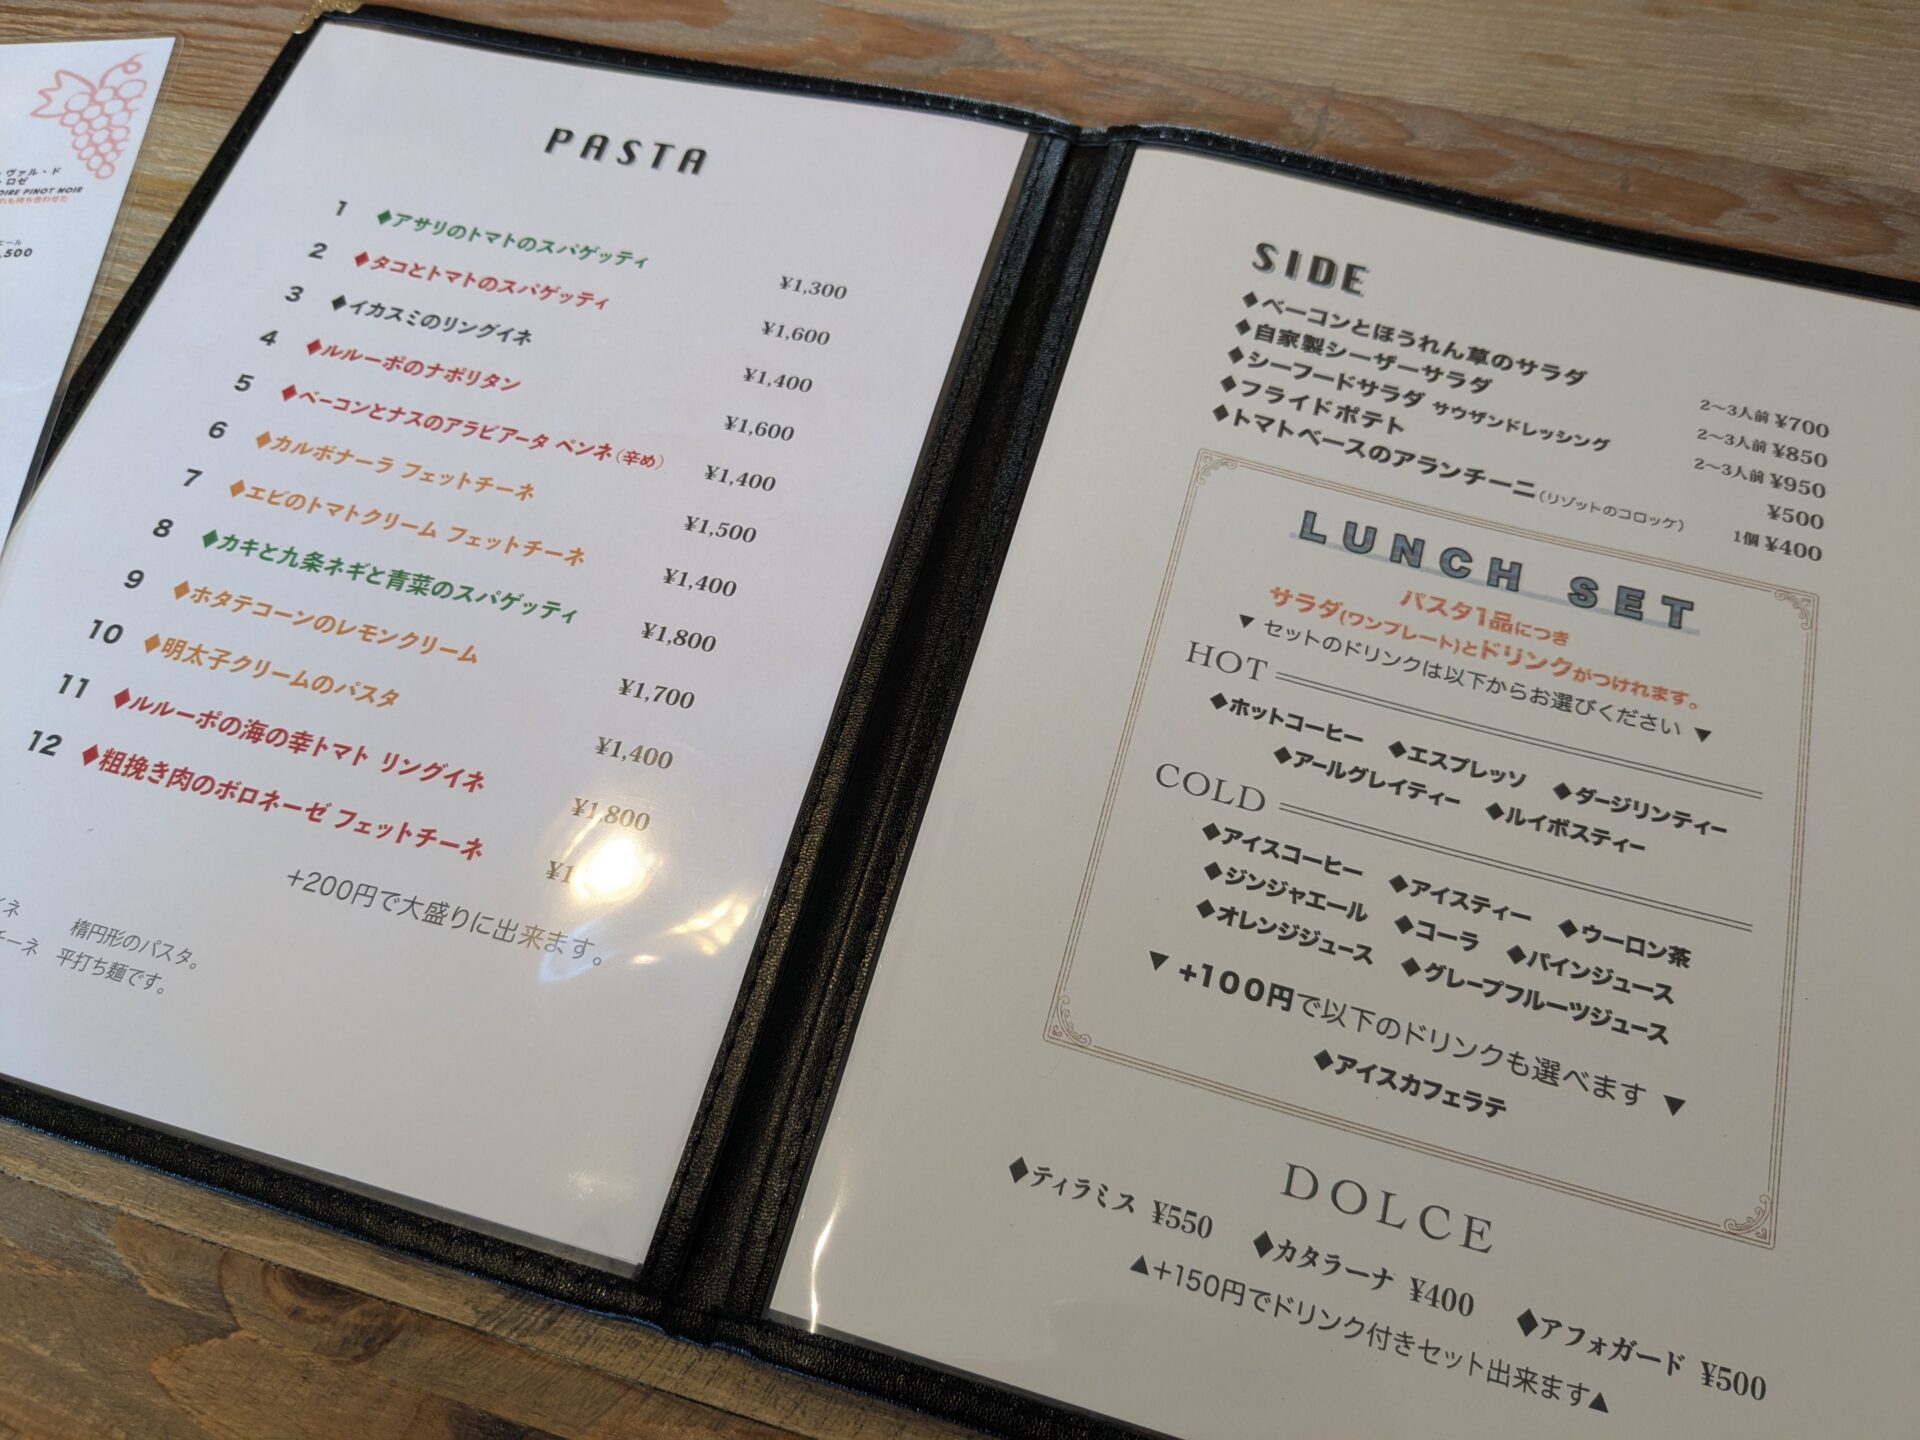 ヴァル・ド
ロゼ
OIRE PINOT NOIR
れも持ち合わせた
エール
,500
PASTA
1 ◆アサリのトマトのスパゲッティ ¥1,300
2 ◆タコとトマトのスパゲッティ ¥1,600
3 ◆イカスミのリングイネ ¥1,400
4 ◆ルルーポのナポリタン ¥1,600
5 ◆ベーコンとナスのアラビアータ ペンネ(辛め) ¥1,400
6 ◆カルボナーラ フェットチーネ ¥1,500
7 ◆エビのトマトクリーム フェットチーネ ¥1,400
8 ◆カキと九条ネギと青菜のスパゲッティ ¥1,800
9 ◆ホタテコーンのレモンクリーム ¥1,700
10 ◆明太子クリームのパスタ ¥1,400
11 ◆ルルーポの海の幸トマト リングイネ ¥1,800
12 ◆粗挽き肉のボロネーゼ フェットチーネ
+200円で大盛りに出来ます。
イネ 楕円形のパスタ。
チーネ 平打ち麺です。
SIDE
◆ベーコンとほうれん草のサラダ 2〜3人前 ¥700
◆自家製シーザーサラダ 2〜3人前 ¥850
◆シーフードサラダ サウザンドレッシング 2〜3人前 ¥950
◆フライドポテト ¥500
◆トマトベースのアランチーニ(リゾットのコロッケ) 1個 ¥400
LUNCH SET
パスタ1品につき
サラダ(ワンプレート)とドリンクがつけれます。
▼ セットのドリンクは以下からお選びください ▼
HOT
◆ホットコーヒー ◆エスプレッソ ◆ダージリンティー
◆アールグレイティー ◆ルイボスティー
COLD
◆アイスコーヒー ◆アイスティー ◆ウーロン茶
◆ジンジャエール ◆コーラ ◆パインジュース
◆オレンジジュース ◆グレープフルーツジュース
▼ +100円で以下のドリンクも選べます ▼
◆アイスカフェラテ
DOLCE
◆ティラミス ¥550 ◆カタラーナ ¥400 ◆アフォガード ¥500
▲+150円でドリンク付きセット出来ます▲